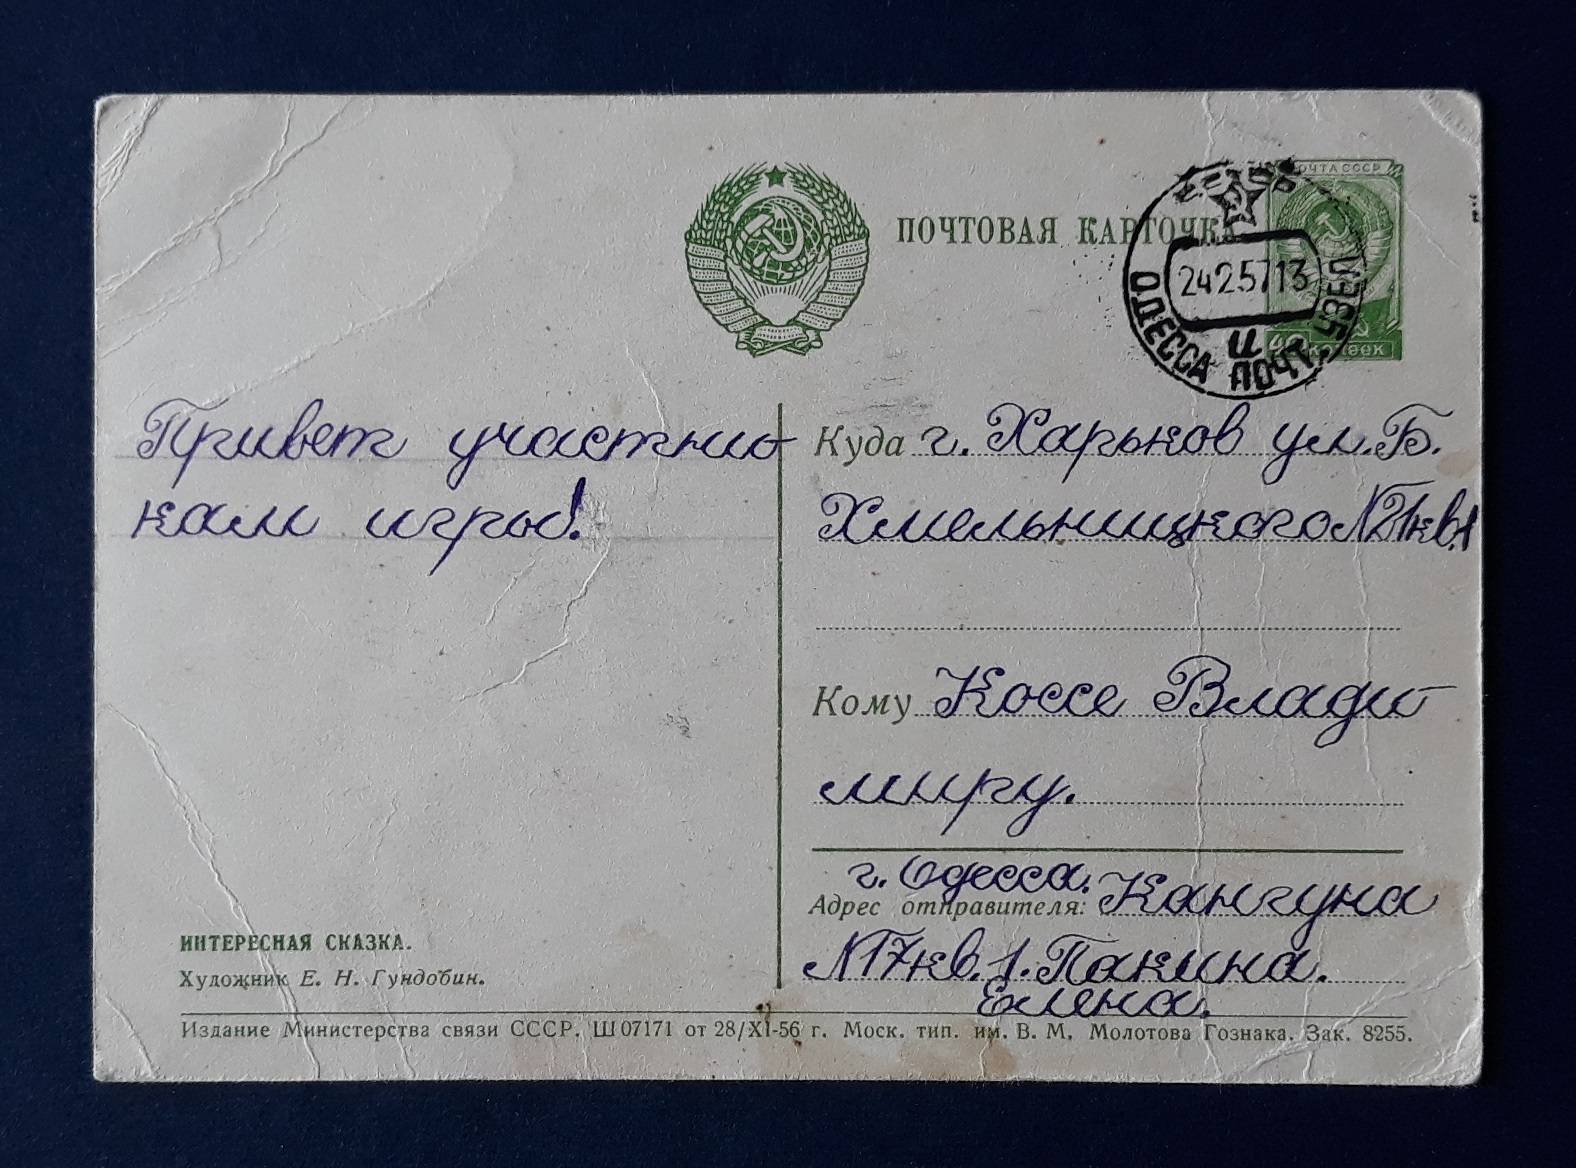 ПОЧТОВАЯ КАРТОЧКА
ПОЧТА СССР
40 копеек
24 2 57 13
и
ОДЕССА ПОЧТ.
Привет участни-
кам игры!
Куда г. Харьков ул. Б.
Хмельницкого № 21 кв. 1
Кому Коссе Влади-
миру.
г. Одесса.
Адрес отправителя: Кангуна
№ 17 кв. 1. Пакина.
Елена.
ИНТЕРЕСНАЯ СКАЗКА.
Художник Е. Н. Гундобин.
Издание Министерства связи СССР. Ш 07171 от 28/XI-56 г. Моск. тип. им. В. М. Молотова Гознака. Зак. 8255.